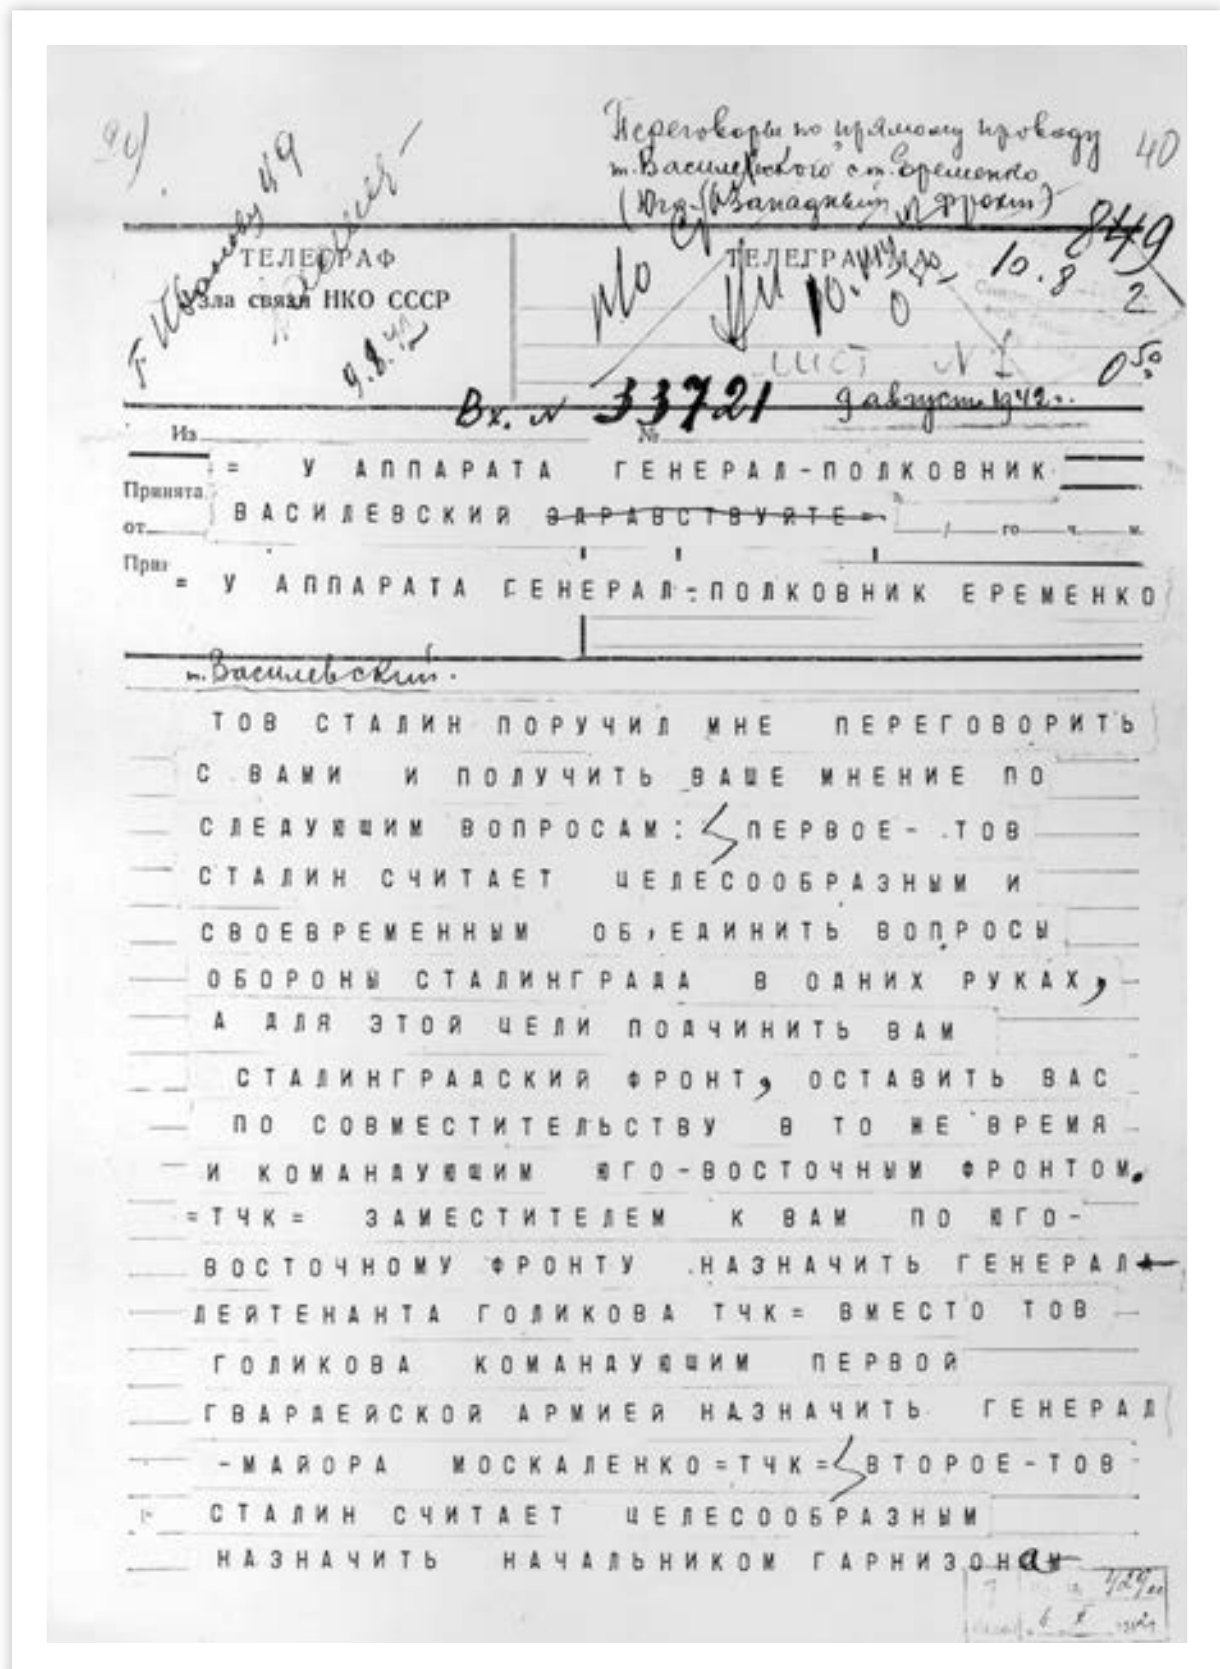 94
Переговоры по прямому проводу
40
т. Василевского с т. Еременко
(Юго- Западный фронт)
849
ТЕЛЕГРАФ
ТЕЛЕГРАММА
10.8
Узла связи НКО СССР
2
9.8.42
ЛИСТ N 1
0 50
Вх. N 33721
9 август 1942г.
Из
№
= У АППАРАТА ГЕНЕРАЛ-ПОЛКОВНИК
Принята
ВАСИЛЕВСКИЙ ЗДРАВСТВУЙТЕ=
от
го ч. м.
= У АППАРАТА ГЕНЕРАЛ-ПОЛКОВНИК ЕРЕМЕНКО
т. Василевский.
ТОВ СТАЛИН ПОРУЧИЛ МНЕ ПЕРЕГОВОРИТЬ
С ВАМИ И ПОЛУЧИТЬ ВАШЕ МНЕНИЕ ПО
СЛЕДУЮШИМ ВОПРОСАМ: ПЕРВОЕ- ТОВ
СТАЛИН СЧИТАЕТ ЦЕЛЕСООБРАЗНЫМ И
СВОЕВРЕМЕННЫМ ОБ,ЕДИНИТЬ ВОПРОСЫ
ОБОРОНЫ СТАЛИНГРАДА В ОДНИХ РУКАХ,
А ДЛЯ ЭТОЙ ЦЕЛИ ПОДЧИНИТЬ ВАМ
СТАЛИНГРАДСКИЙ ФРОНТ, ОСТАВИТЬ ВАС
ПО СОВМЕСТИТЕЛЬСТВУ В ТО ЖЕ ВРЕМЯ
И КОМАНДУЮШИМ ЮГО-ВОСТОЧНЫМ ФРОНТОМ.
=ТЧК= ЗАМЕСТИТЕЛЕМ К ВАМ ПО ЮГО-
ВОСТОЧНОМУ ФРОНТУ .НАЗНАЧИТЬ ГЕНЕРАЛА
ЛЕЙТЕНАНТА ГОЛИКОВА ТЧК= ВМЕСТО ТОВ
ГОЛИКОВА КОМАНДУЮШИМ ПЕРВОЙ
ГВАРДЕЙСКОЙ АРМИЕЙ НАЗНАЧИТЬ ГЕНЕРАЛ
-МАЙОРА МОСКАЛЕНКО=ТЧК= ВТОРОЕ-ТОВ
СТАЛИН СЧИТАЕТ ЦЕЛЕСООБРАЗНЫМ
НАЗНАЧИТЬ НАЧАЛЬНИКОМ ГАРНИЗОНА